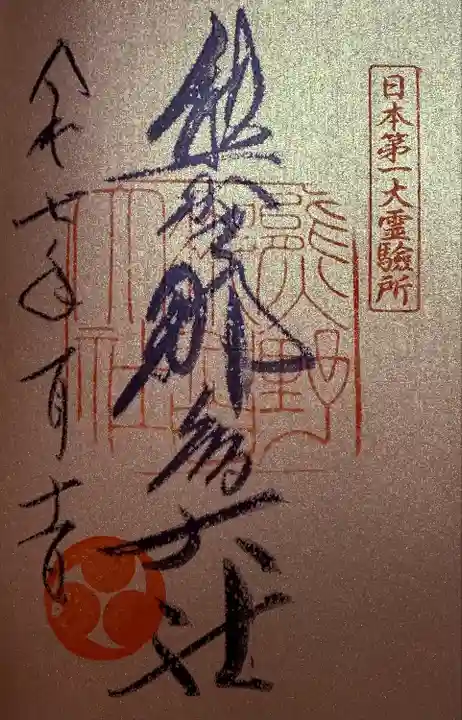 日本第一大霊験所
熊野那智大社
熊野
那智
大社
令和七年